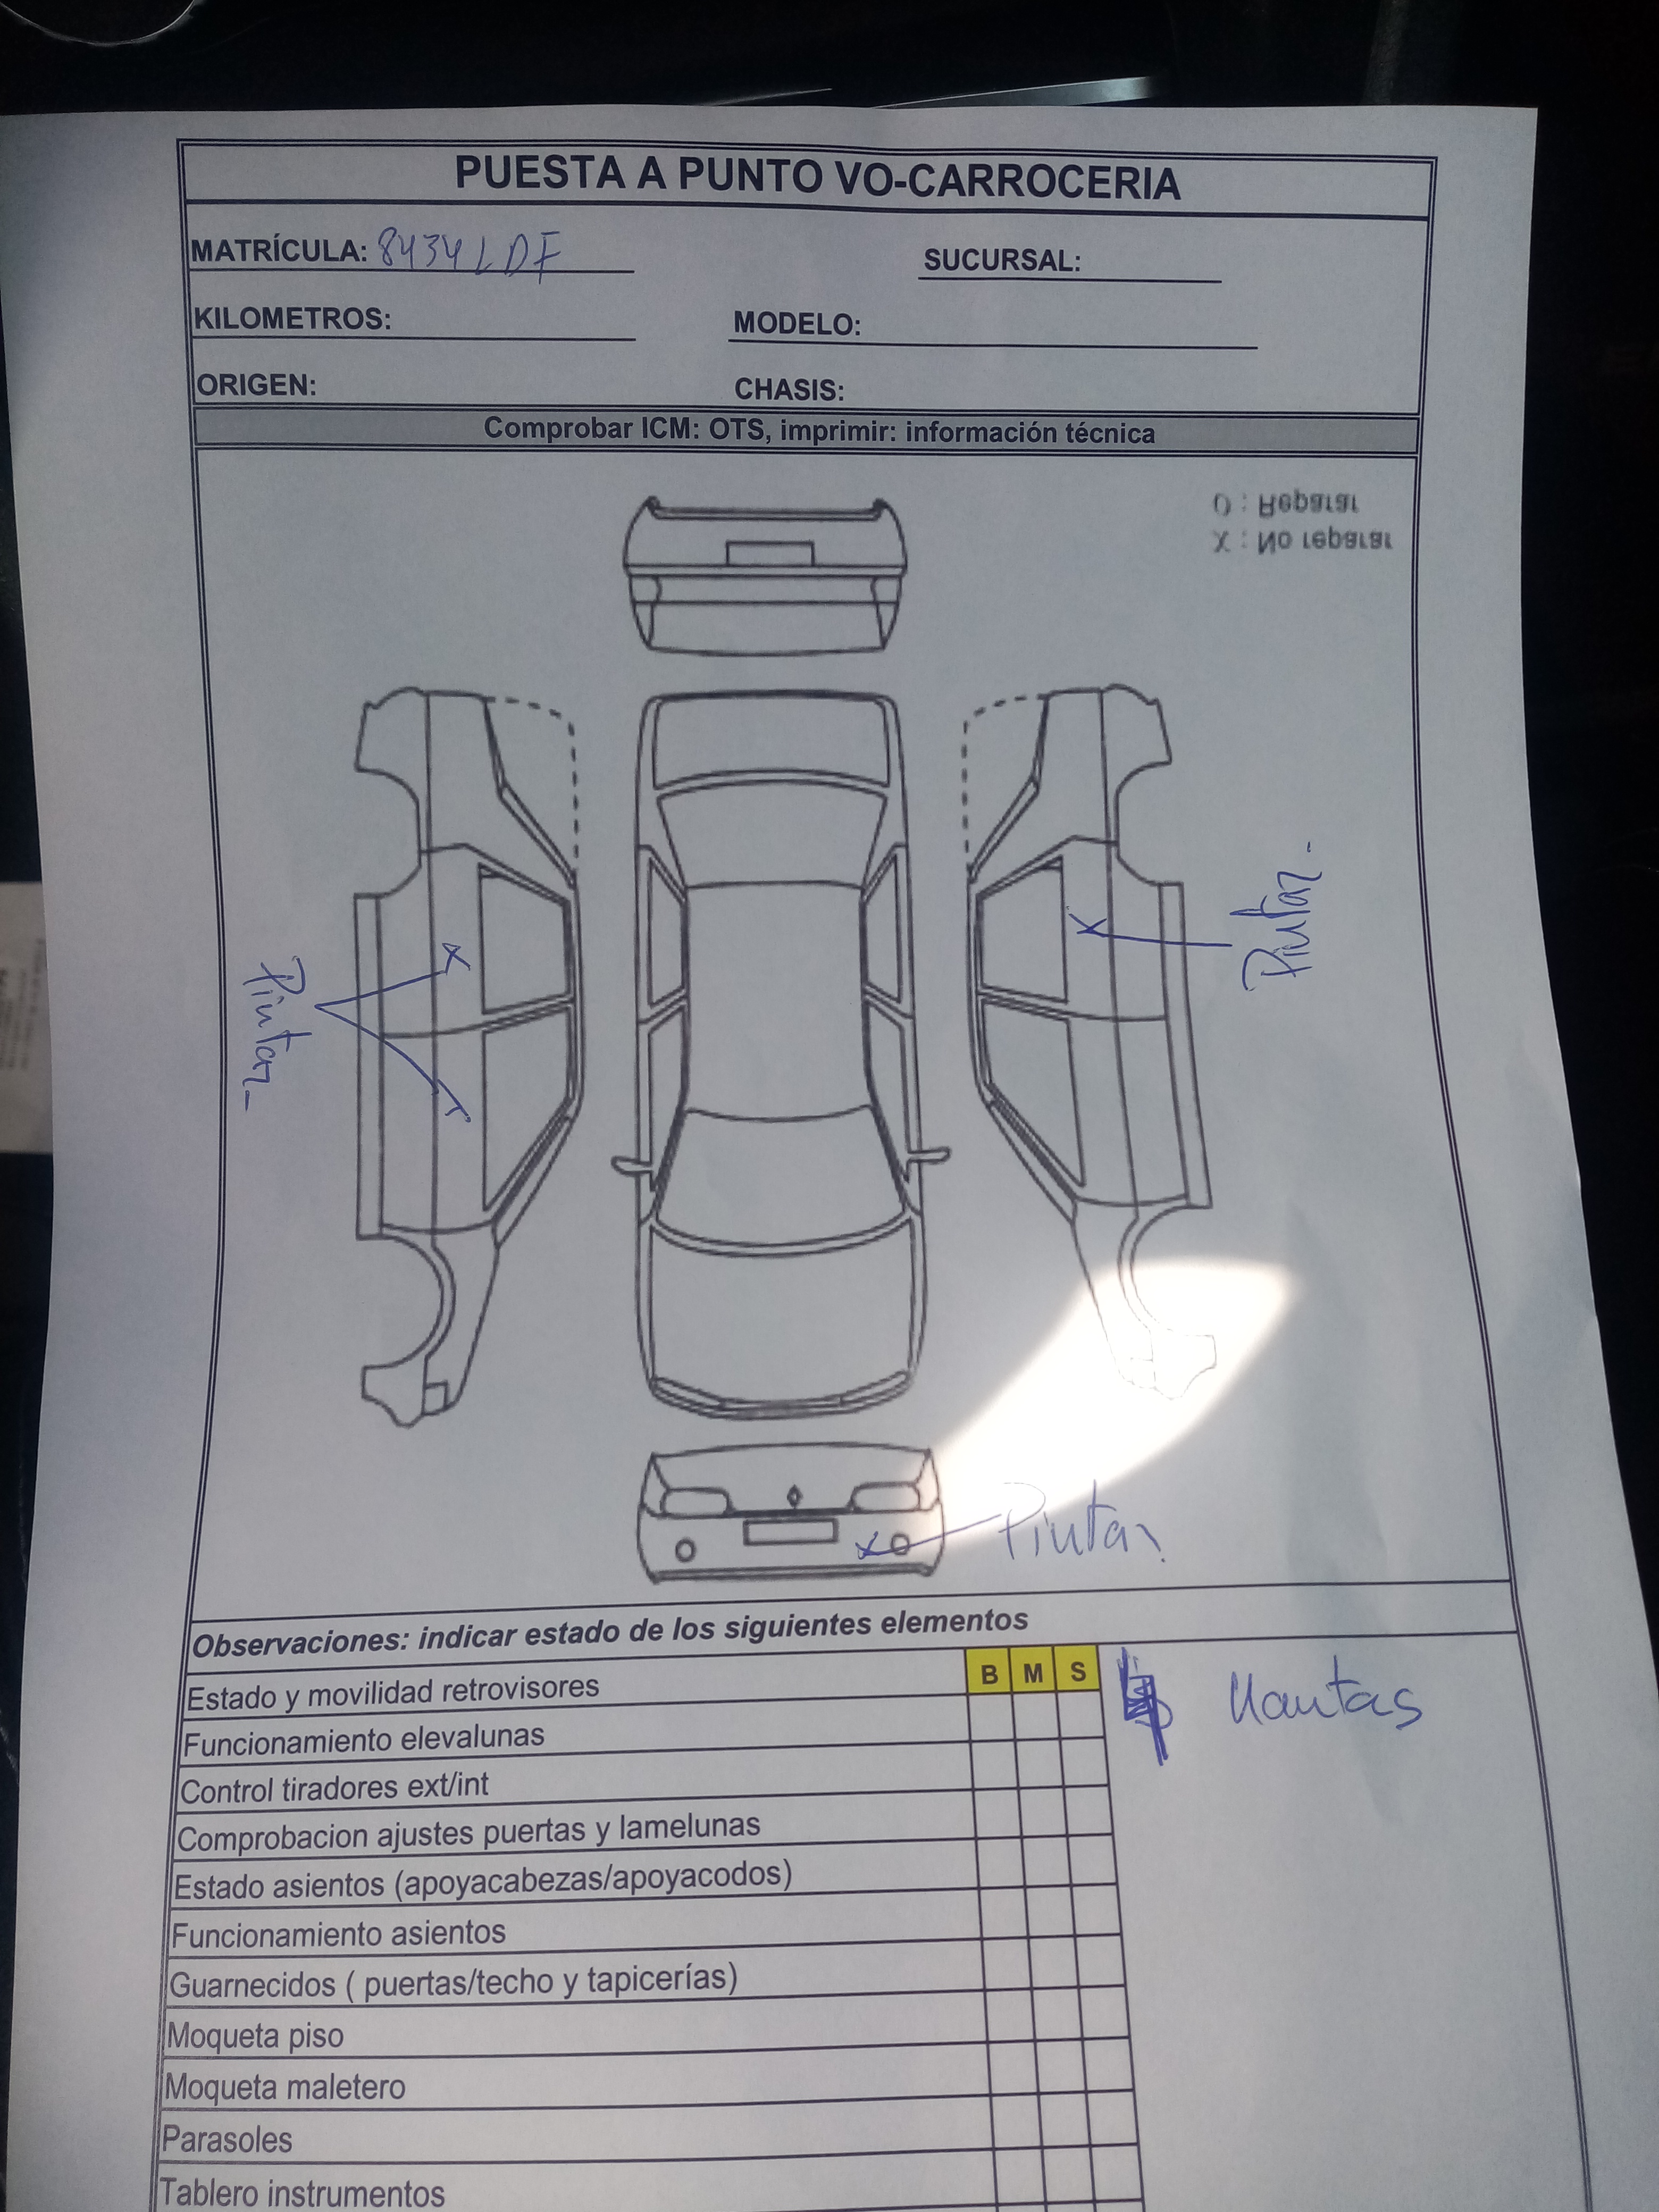 PUESTA A PUNTO VO-CARROCERIA
MATRÍCULA: 8434LDF
SUCURSAL:
KILOMETROS:
MODELO:
ORIGEN:
CHASIS:
Comprobar ICM: OTS, imprimir: información técnica
O : Reparar
X : No reparar
Pintar -
Pintar -
Pintar
Observaciones: indicar estado de los siguientes elementos
B M S
Estado y movilidad retrovisores
Llantas
Funcionamiento elevalunas
Control tiradores ext/int
Comprobacion ajustes puertas y lamelunas
Estado asientos (apoyacabezas/apoyacodos)
Funcionamiento asientos
Guarnecidos ( puertas/techo y tapicerías)
Moqueta piso
Moqueta maletero
Parasoles
Tablero instrumentos